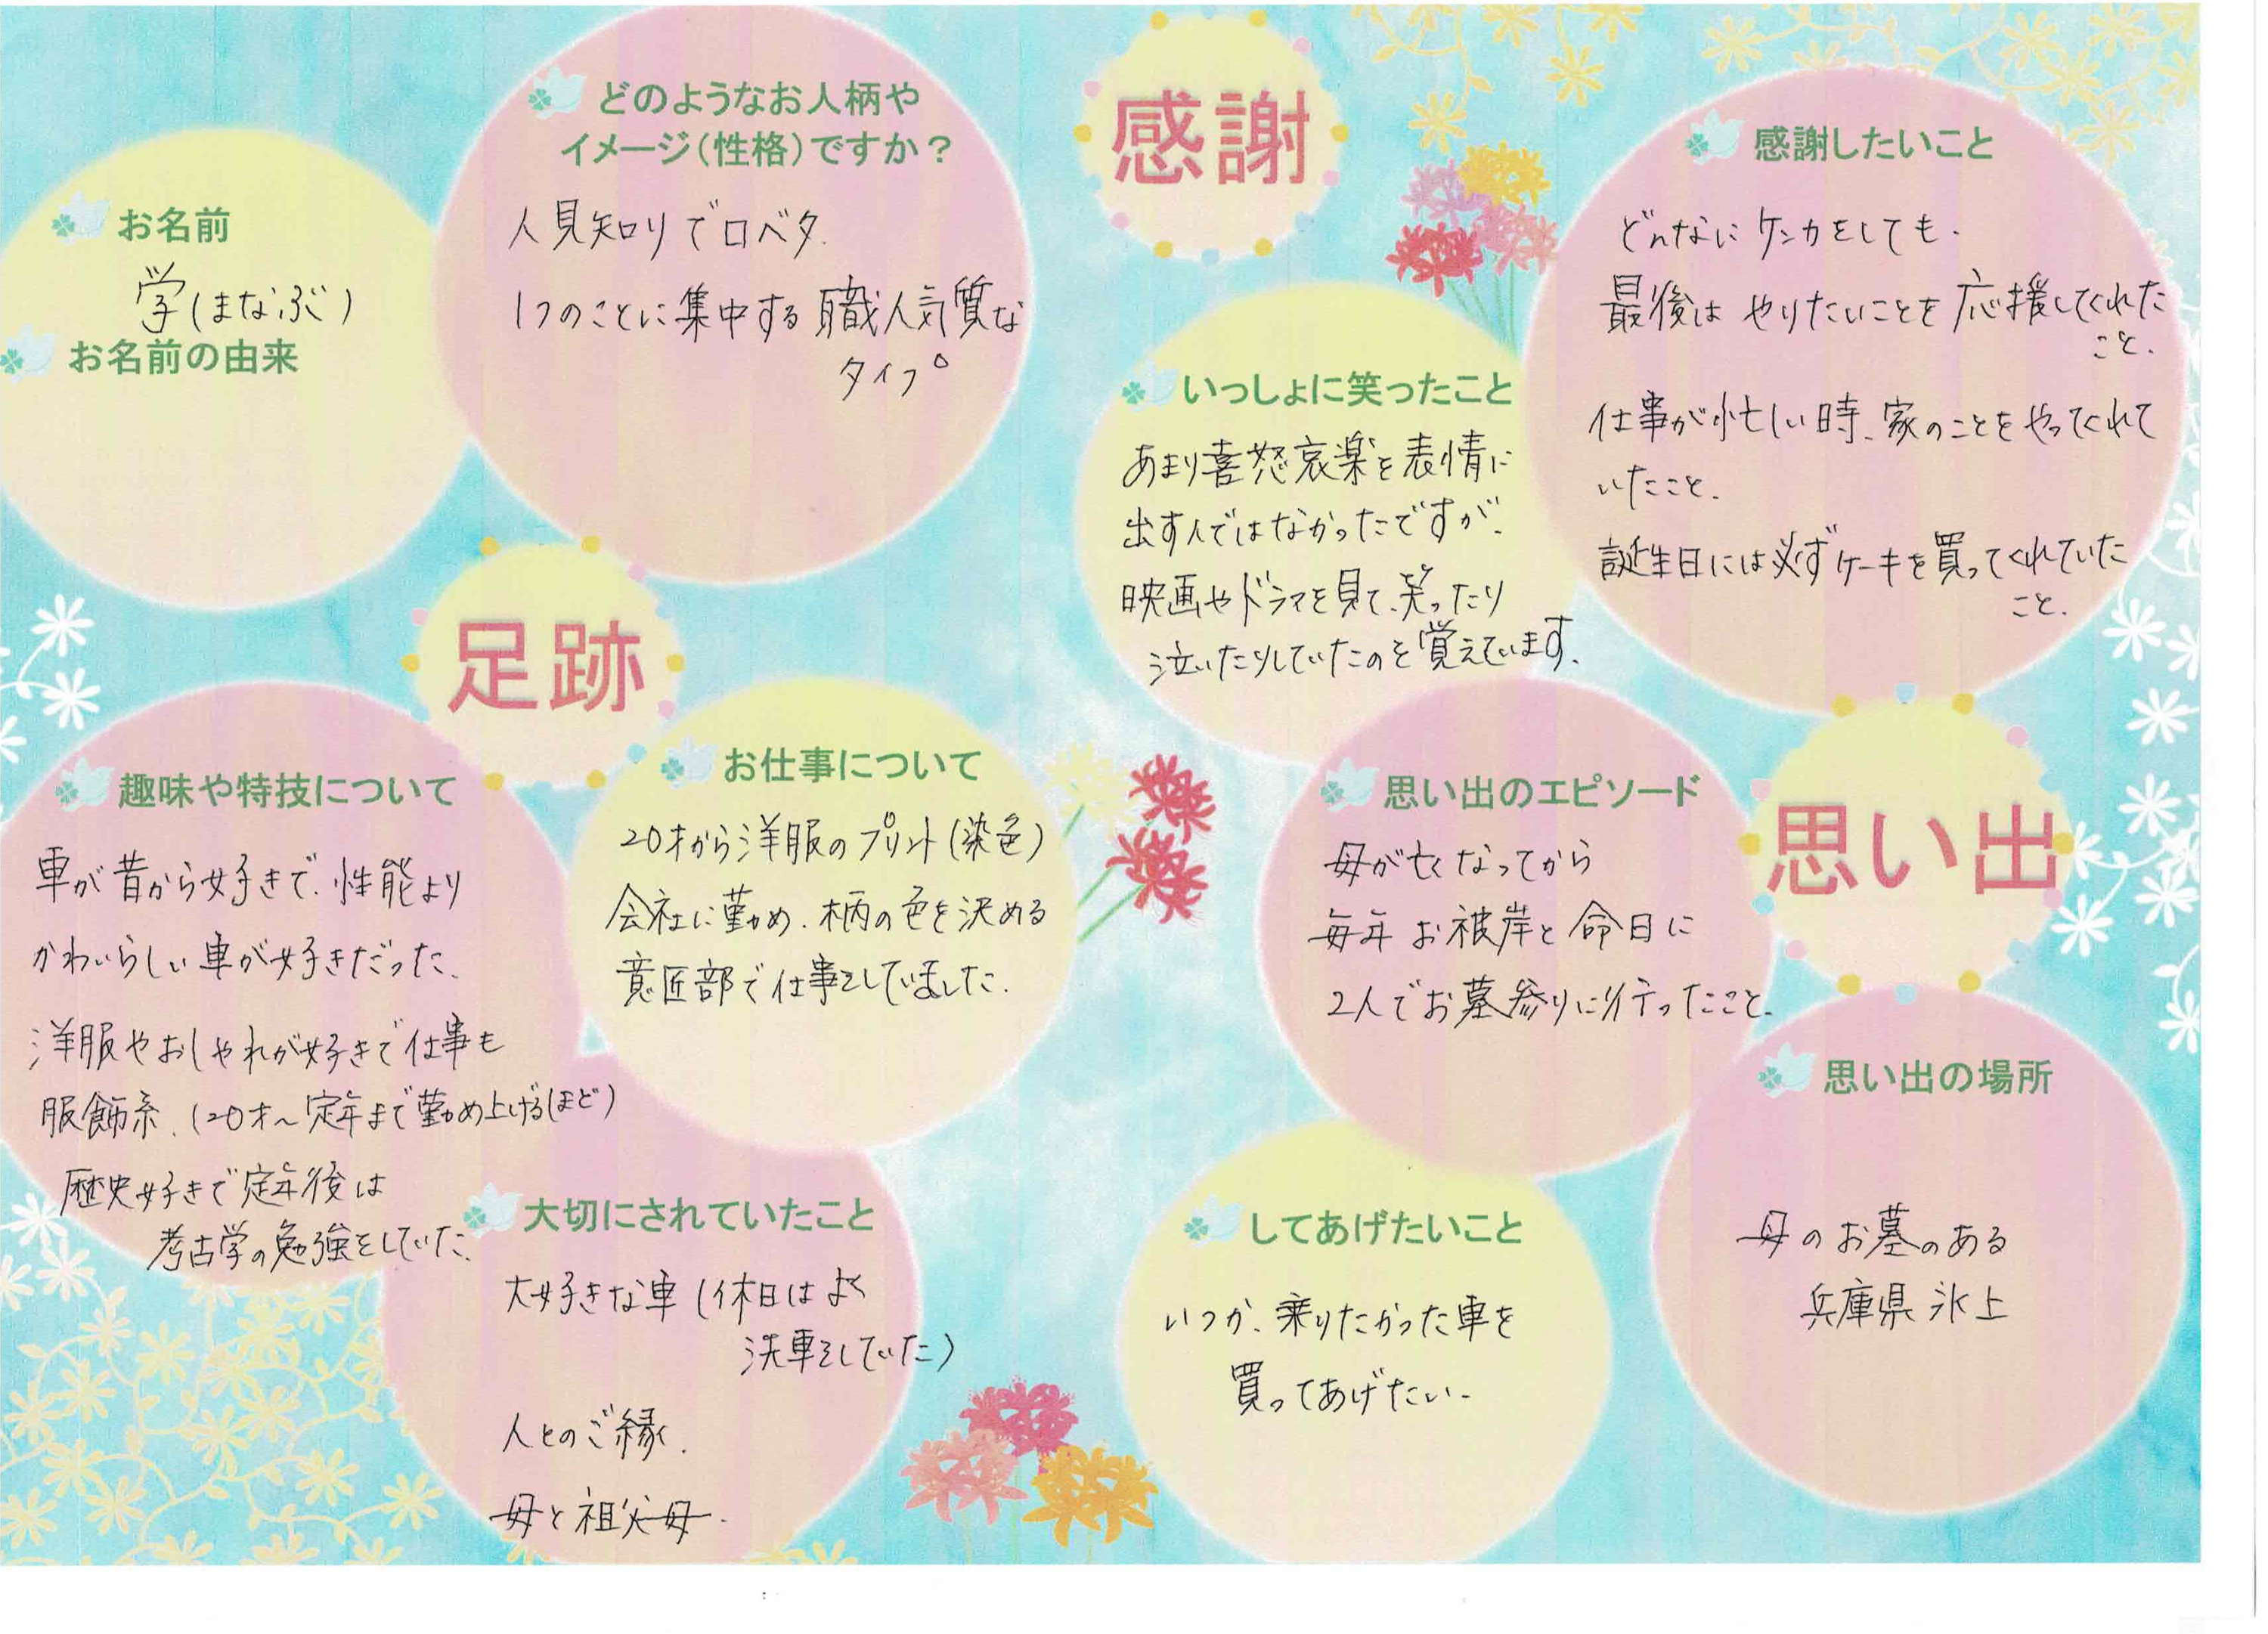 お名前
学(まなぶ)
お名前の由来
どのようなお人柄や
イメージ(性格)ですか?
人見知りで口ベタ.
1つのことに集中する職人気質な
タイプ。
足跡
趣味や特技について
車が昔から好きで、性能より
かわいらしい車が好きだった、
洋服やおしゃれが好きで仕事も
服飾系、(20才～定年まで勤め上げるほど)
歴史好きで定年後は
考古学の勉強をしていた、
お仕事について
20才から洋服のプリント(染色)
会社に勤め、柄の色を決める
意匠部で仕事をしていました.
大切にされていたこと
大好きな車(休日はよく
洗車をしていた)
人とのご縁.
母と祖父母.
感謝
いっしょに笑ったこと
あまり喜怒哀楽を表情に
出す人ではなかったですが、
映画やドラマを見て、笑ったり
泣いたりしていたのを覚えています.
感謝したいこと
どんなにケンカをしても.
最後はやりたいことを応援してくれた
こと.
仕事が忙しい時、家のことをやってくれて
いたこと.
誕生日には必ずケーキを買ってくれていた
こと.
思い出
思い出のエピソード
母が亡くなってから
毎年お彼岸と命日に
2人でお墓参りに行ったこと.
思い出の場所
母のお墓のある
兵庫県氷上
してあげたいこと
いつか、乗りたかった車を
買ってあげたい.